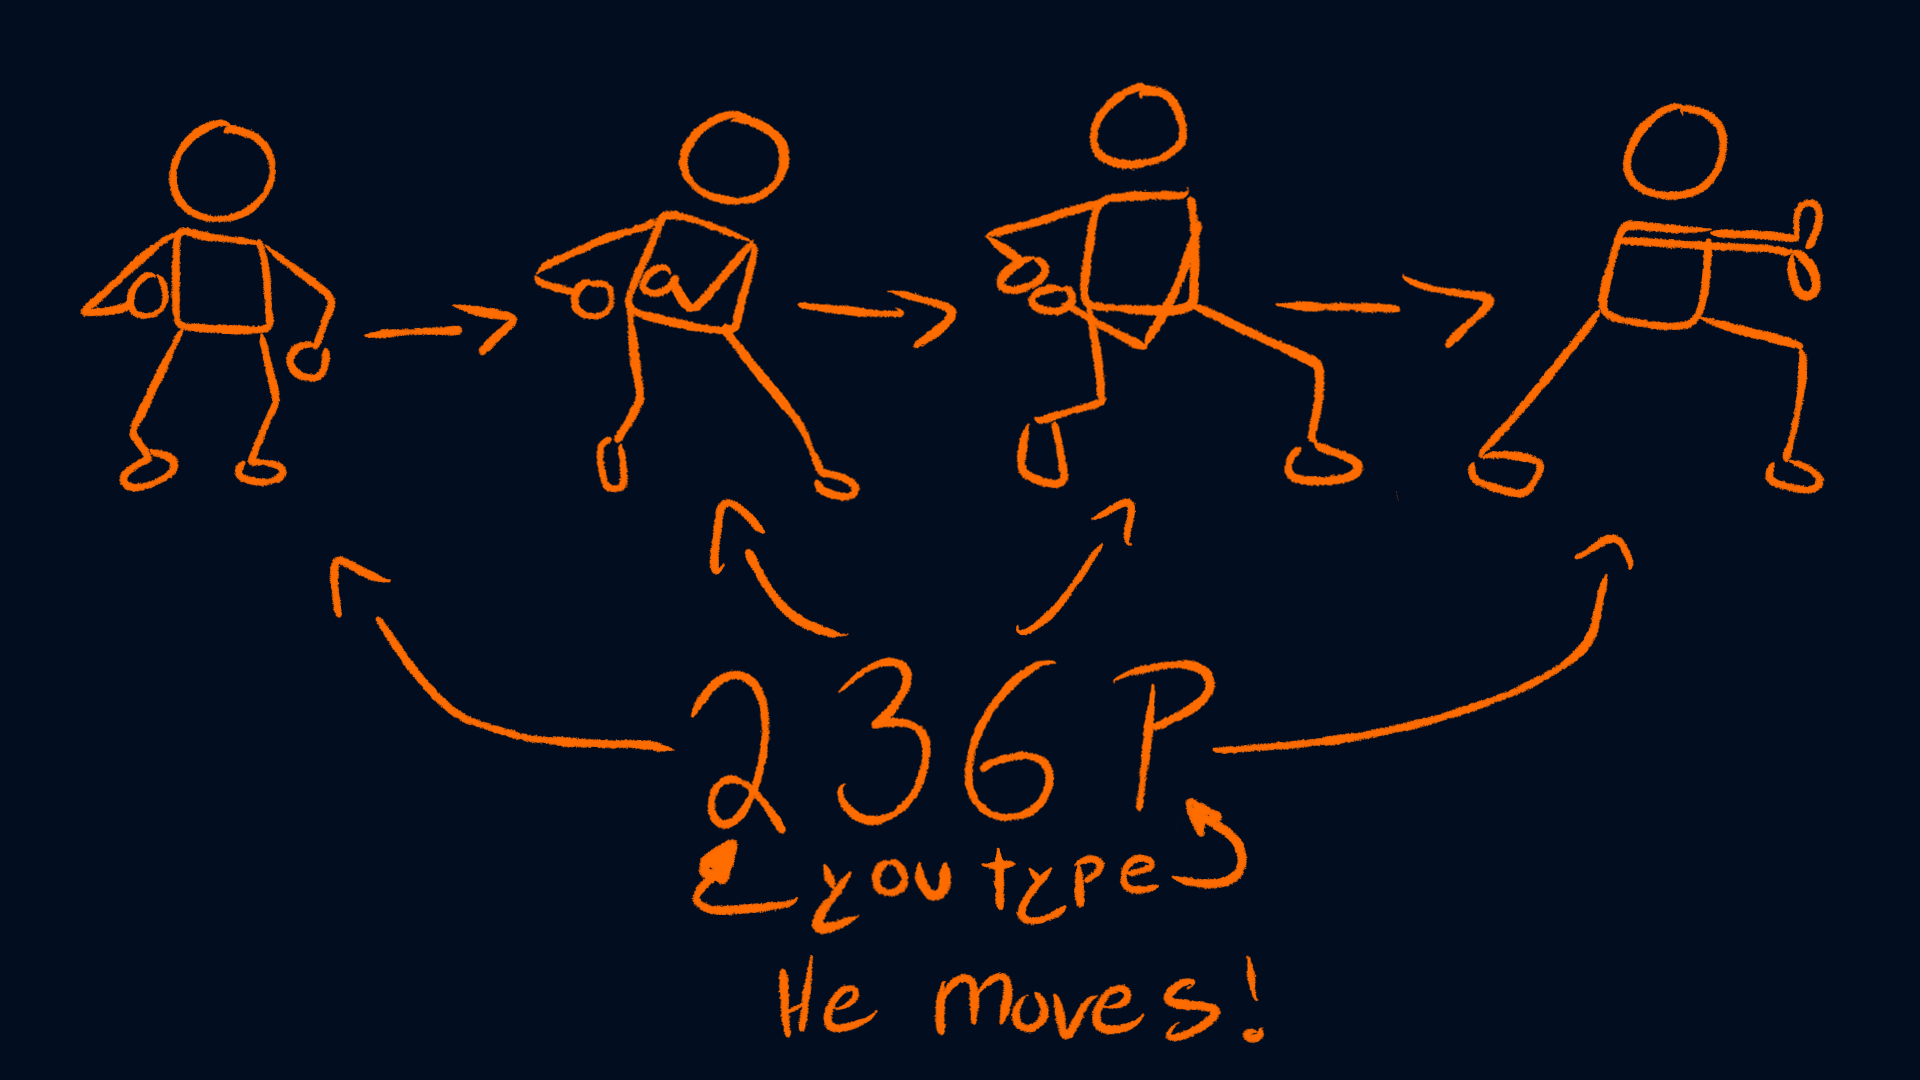 236P
you type
He moves!